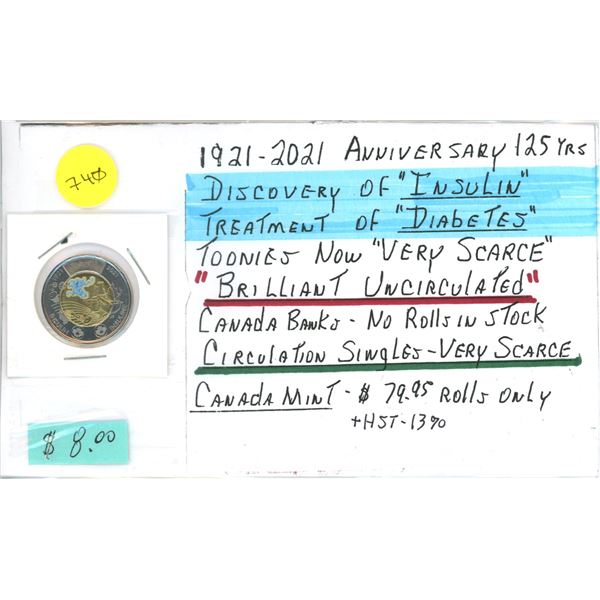 740
1921-2021 ANNIVERSARY 125 YRS
DISCOVERY OF "INSULIN"
TREATMENT OF "DIABETES"
TOONIES NOW "VERY SCARCE"
"BRILLIANT UNCIRCULATED"
CANADA BANKS - NO ROLLS IN STOCK
CIRCULATION SINGLES - VERY SCARCE
CANADA MINT - $ 79.95 ROLLS ONLY
+HST-13%
$ 8.00